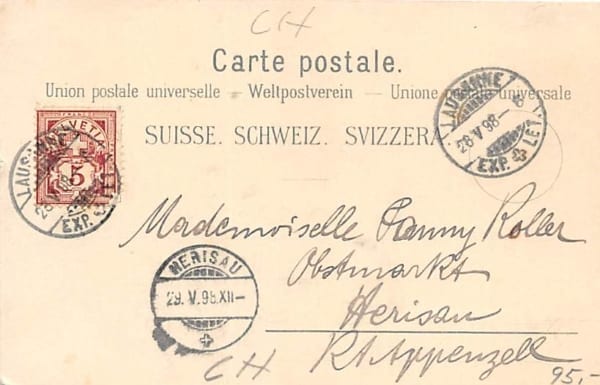 CH
Carte postale.
Union postale universelle – Weltpostverein – Unione postale universale
SUISSE. SCHWEIZ. SVIZZERA
HELVETIA
5
LAUSANNE
28.V.98-8
EXP. LET.
LAUSANNE
28.V.98
EXP. LET.
Mademoiselle Fanny Roller
Obstmarkt
Herisau
Kt. Appenzell
HERISAU
29.V.98.XII–
CH
95,-